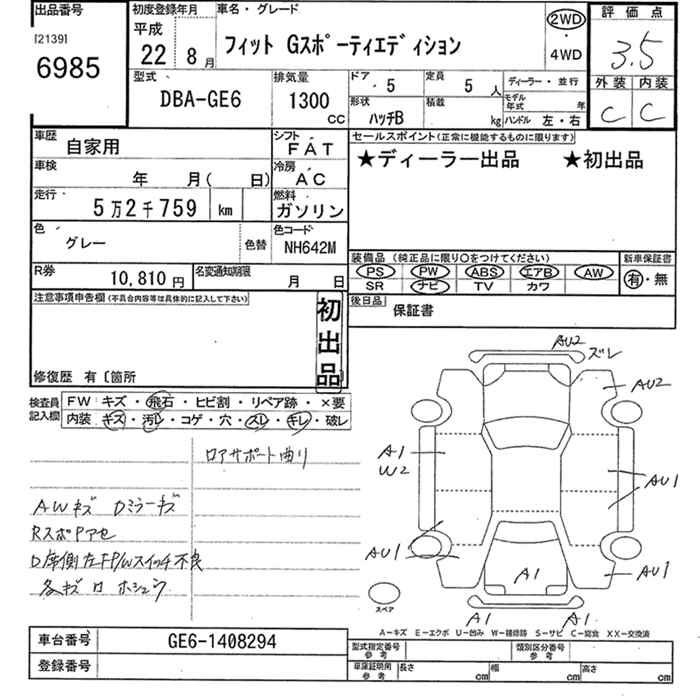 出品番号
[2139]
6985
初度登録年月
平成
22 8月
車名・グレード
フィット Gスポーティエディション
2WD
・
4WD
評価点
3.5
外装 内装
C C
型式
DBA-GE6
排気量
1300
CC
ドア 5
定員 5 人
ディーラー・並行
形状 ハッチB
積載 kg
モデル年式 年
ハンドル 左・右
車歴 自家用
シフト FAT
車検 年 月( 日)
冷房 AC
走行 5万2千759 km
燃料 ガソリン
色 グレー
色替
色コード NH642M
R券 10,810円
名変通知期限 月 日
セールスポイント(正常に機能するものに限ります)
★ディーラー出品 ★初出品
装備品(純正品に限り○をつけてください)
PS PW ABS エアB AW
SR ナビ TV カワ
新車保証書
有・無
後日品 保証書
注意事項申告欄(不具合内容等は具体的に記入して下さい)
初出品
修復歴 有〔箇所
検査員記入欄
FW キズ・飛石・ヒビ割・リペア跡・×要
内装 キズ・汚レ・コゲ・穴・スレ・キレ・破レ
ロアサポート曲り
AWキズ Dミラーキズ
RスポPアセ
D席側左FP/Wスイッチ不良
AU2
ズレ
AU2
A1
W2
AU1
AU1
AU1
A1
A1
A1
スペア
A-キズ E-エクボ U-凹み W-補修跡 S-サビ C-腐食 XX-交換済
車台番号 GE6-1408294
登録番号
型式指定番号参考
類別区分番号参考
車庫証明用参考
長さ cm
幅 cm
高さ cm